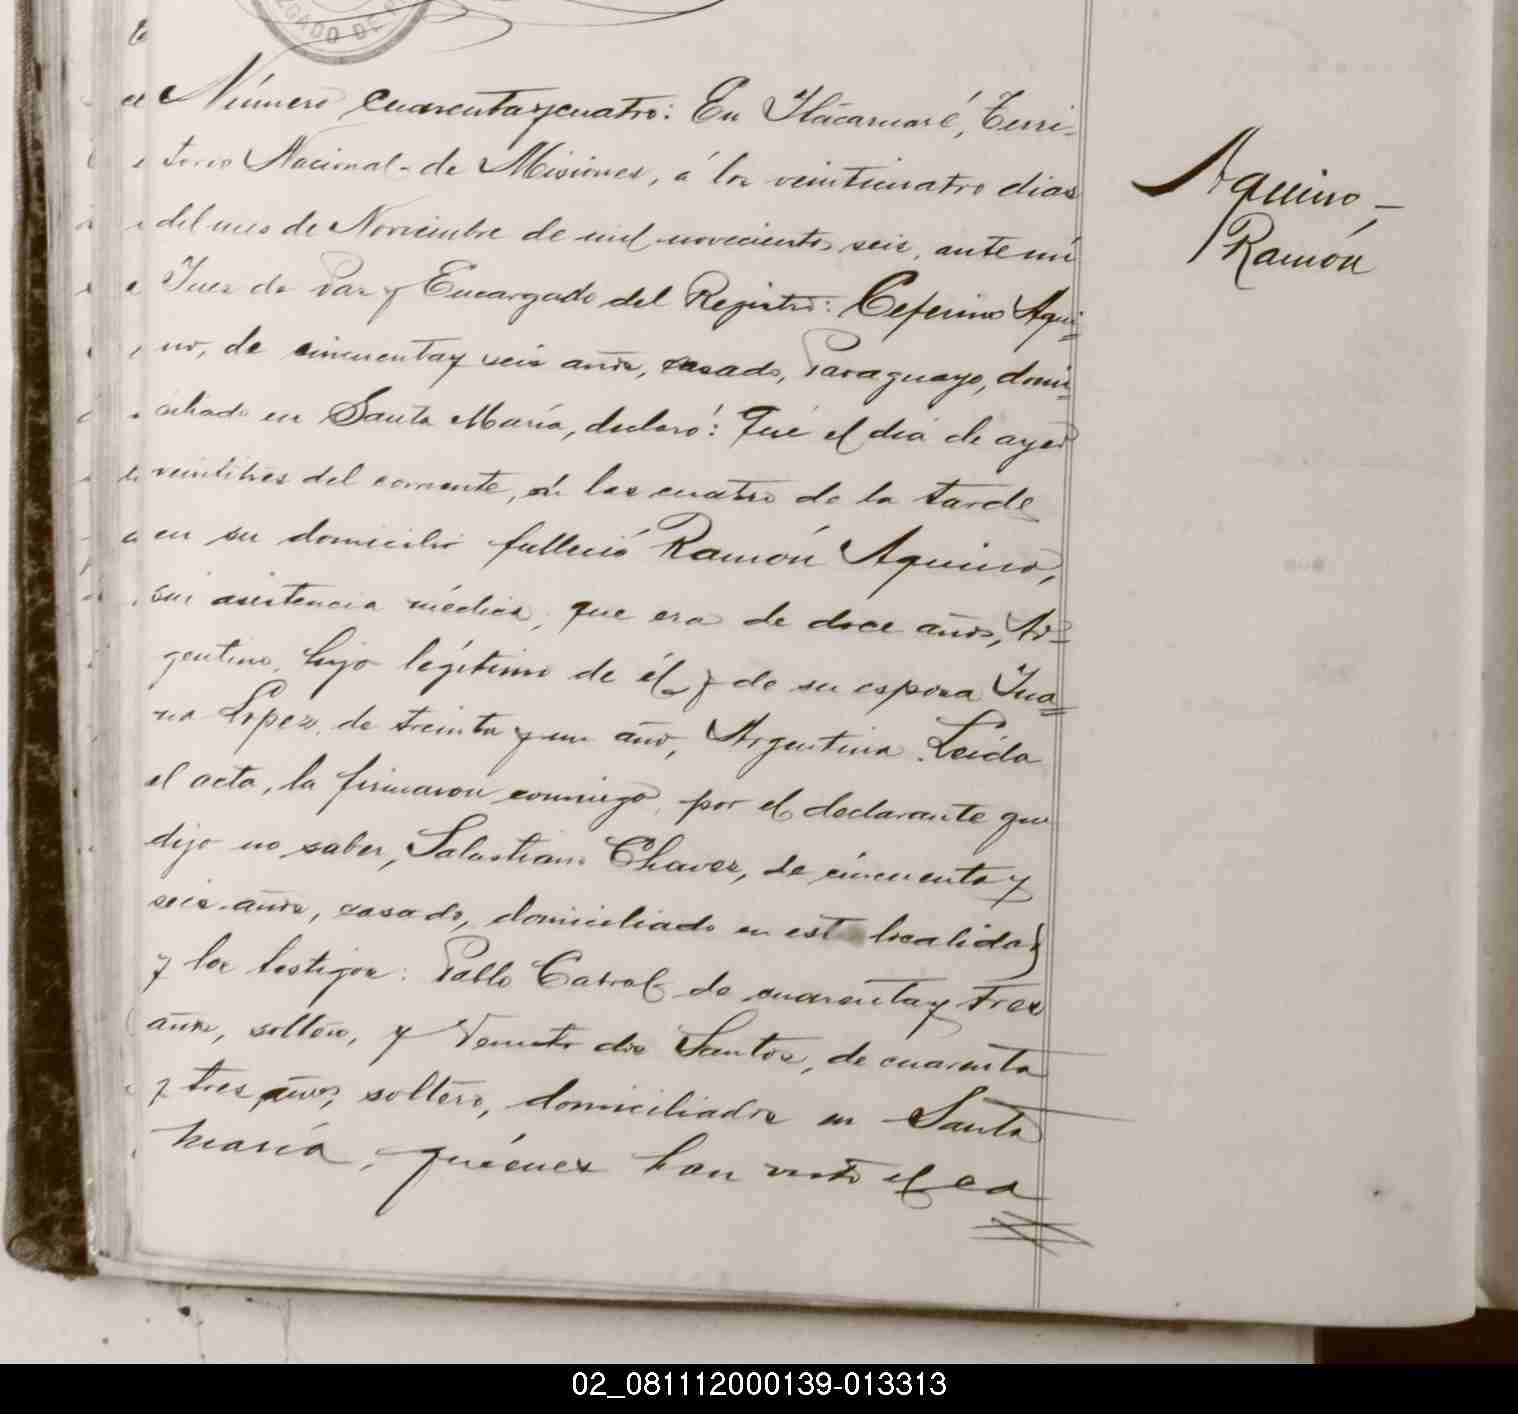 Número cuarenta y cuatro: En Itacaruaré, Terri-
torio Nacional de Misiones, á los veinticuatro dias
del mes de Noviembre de mil novecientos seis, ante mí
Juez de Paz y Encargado del Registro: Ceferino Aqui=
no, de cincuenta y seis años, casado, Paraguayo, domi=
ciliado en Santa María, declaró: Que el día de ayer
veintitres del corriente, á las cuatro de la tarde
en su domicilio falleció Ramón Aquino,
sin asistencia médica, que era de doce años, Ar=
gentino, hijo legítimo de él y de su esposa Jua=
na Lopez, de treinta y un año, Argentina. Leida
el acta, la firmaron conmigo, por el declarante que
dijo no saber, Salustiano Chavez, de cincuenta y
seis años, casado, domiciliado en est localidad
y los testigos: Pablo Cabral de cuarenta y tres
años, soltero, y dos Santos, de cuarenta
y tres años, soltero, domiciliados en Santa
María, quienes han visto el ca
Aquino -
Ramón
02_081112000139-013313